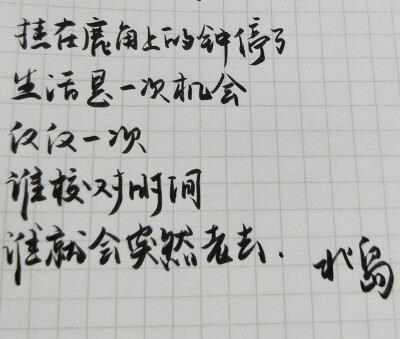 挂在鹿角上的钟停了
生活是一次机会
仅仅一次
谁校对时间
谁就会突然老去.
北岛